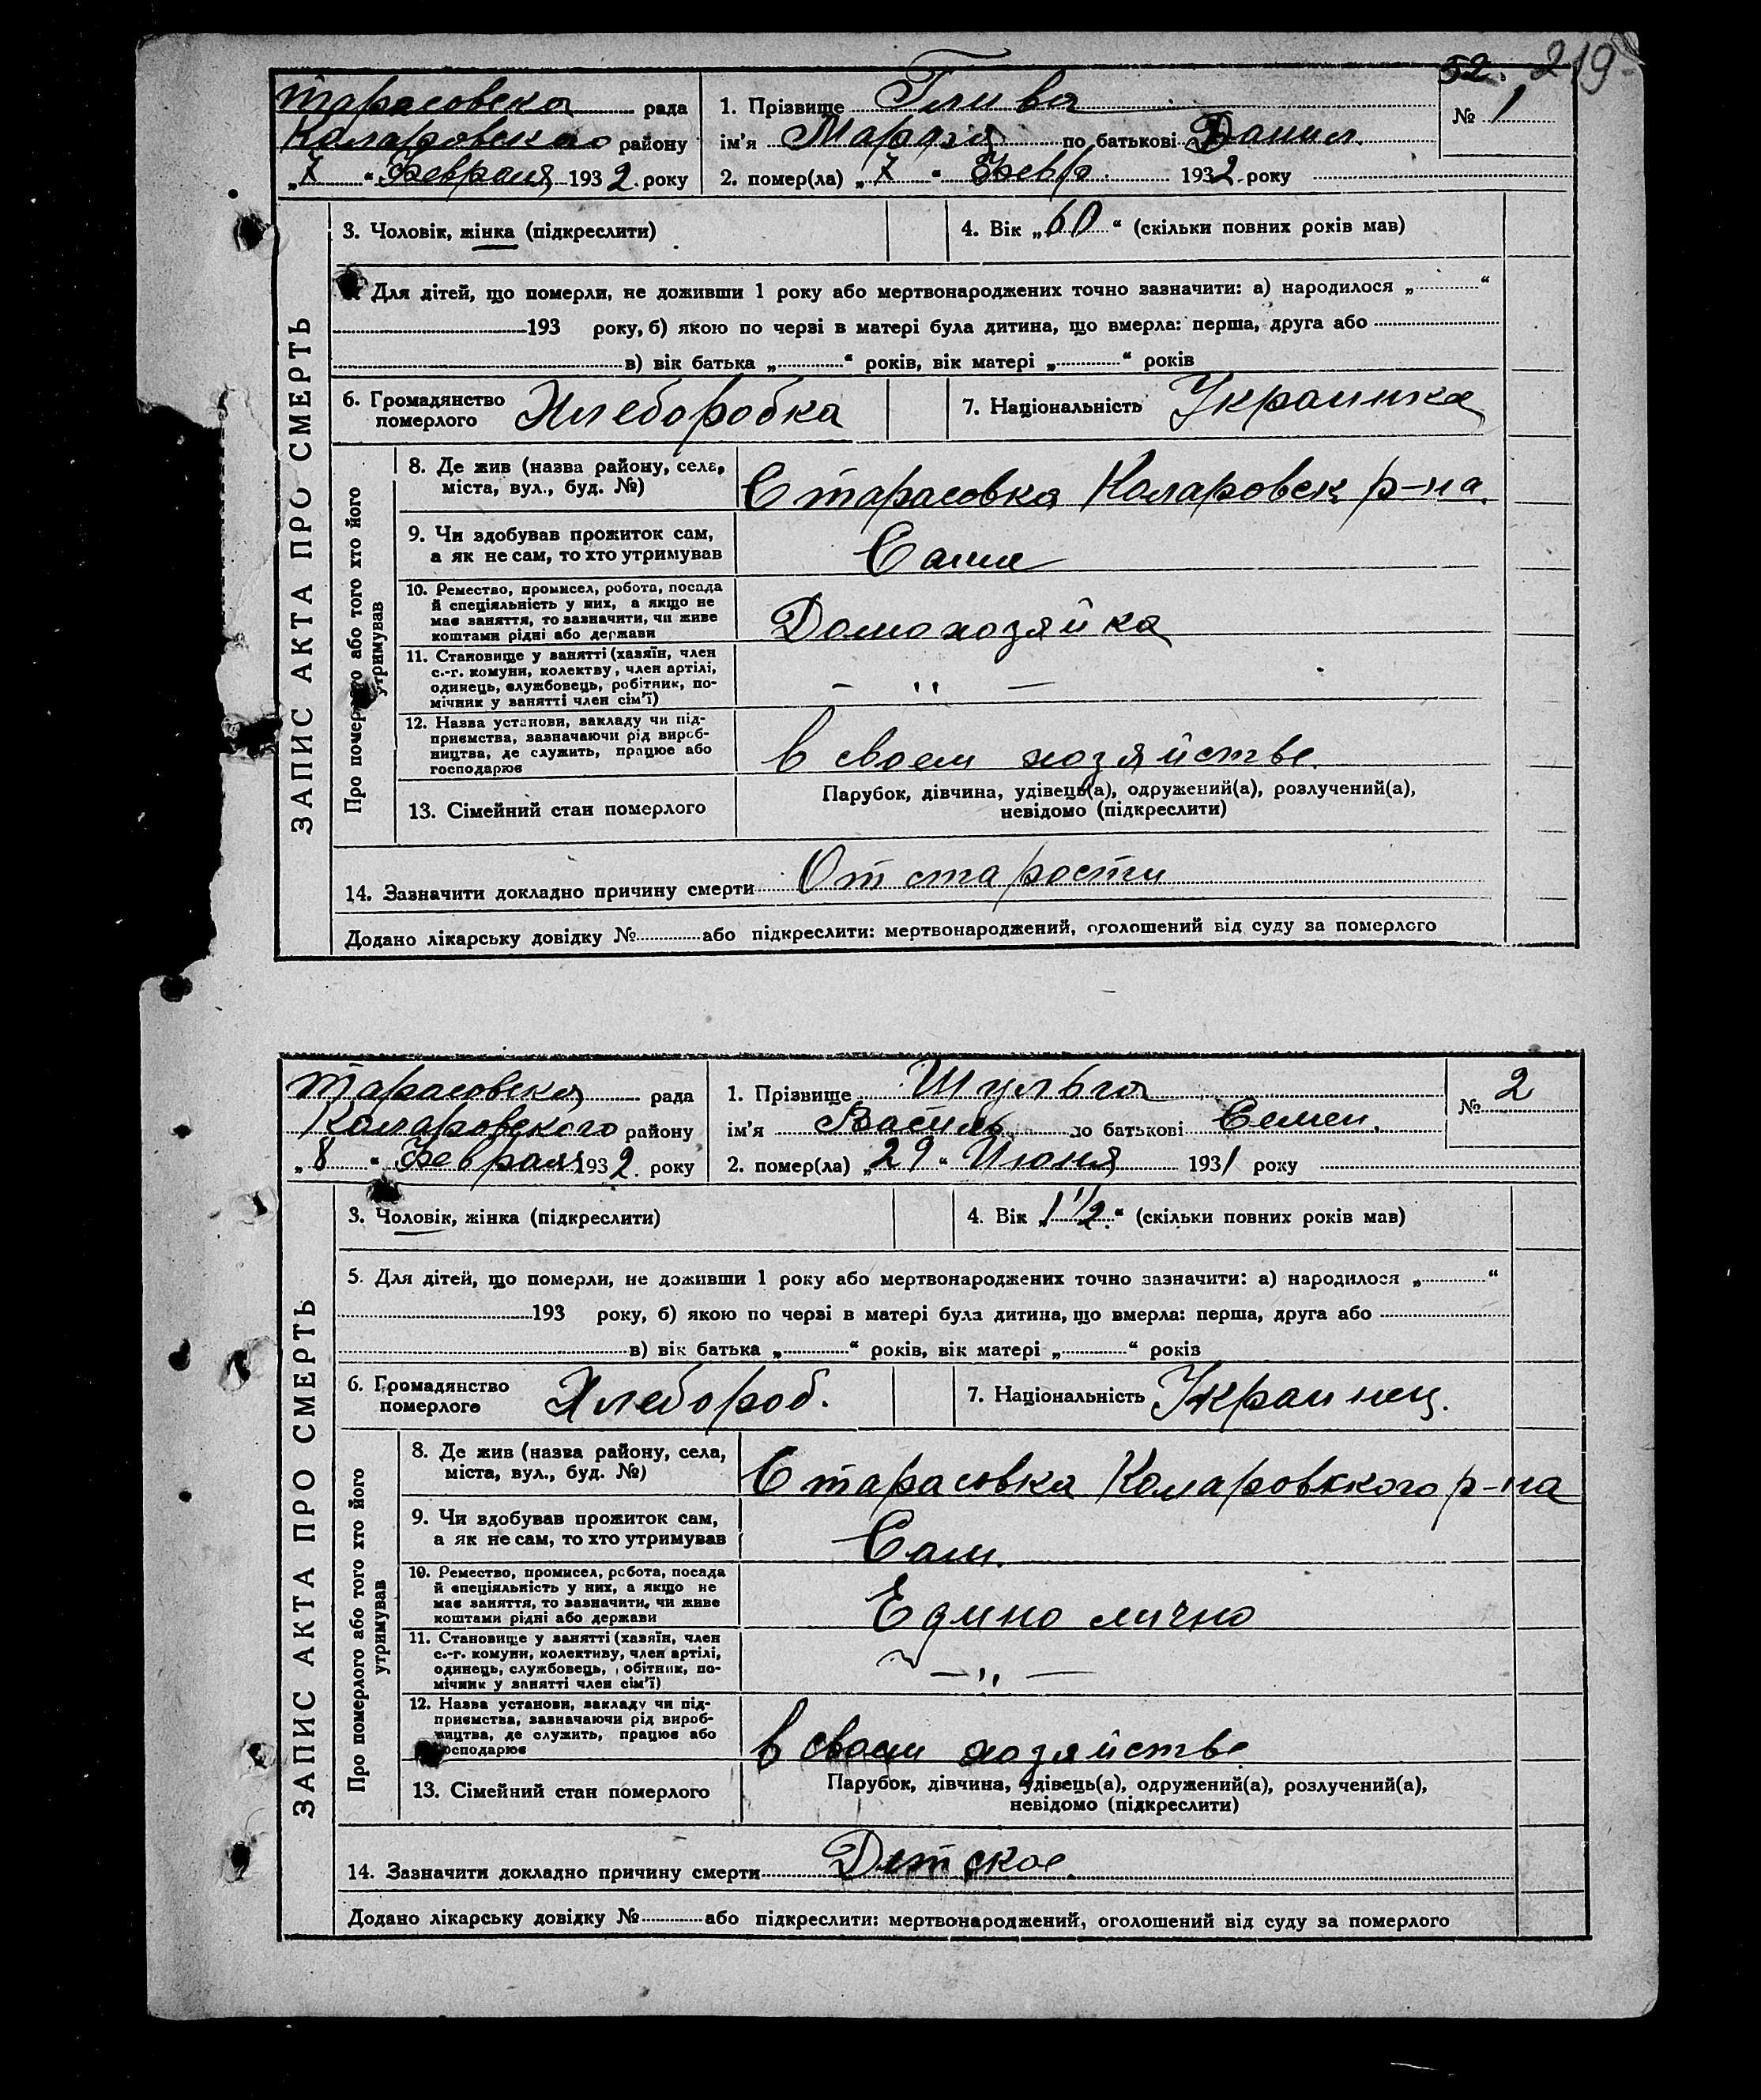 52. 219
Тарасовска рада
Коларовского району
„7“ Февраля 1932 року
1. Прізвище Глива
№ 1
ім'я по батькові Данил.
2. помер(ла) „7“ Февр. 1932 року
ЗАПИС АКТА ПРО СМЕРТЬ
3. Чоловік, жінка (підкреслити)
4. Вік „60“ (скільки повних років мав)
Для дітей, що померли, не доживши 1 року або мертвонароджених точно зазначити: а) народилося „ “
193 року, б) якою по черзі в матері була дитина, що вмерла: перша, друга або
в) вік батька „ “ років, вік матері „ “ років
6. Громадянство померлого Хлеборобка
7. Національність Украинка
Про померлого або того хто його утримував
8. Де жив (назва району, села,
міста, вул., буд. №)
С тарасовка Коларовск р-на.
9. Чи здобував прожиток сам,
а як не сам, то хто утримував
Сама
10. Ремество, промисел, робота, посада
й спеціяльність у них, а якщо не
має заняття, то зазначити, чи живе
коштами рідні або держави
Домохозяйка
11. Становище у занятті (хазяїн, член
с.-г. комуни, колектву, член артілі,
одинець, службовець, робітник, по-
мічник у занятті член сім'ї)
— " —
12. Назва установи, закладу чи під-
приємства, зазначаючи рід вироб-
ництва, де служить, працює або
господарює
в своем хозяйстве.
13. Сімейний стан померлого
Парубок, дівчина, удівець(а), одружений(а), розлучений(а),
невідомо (підкреслити)
14. Зазначити докладно причину смерти От старости
Додано лікарську довідку № або підкреслити: мертвонароджений, оголошений від суду за померлого
Тарасовска рада
Коларовского району
„8“ Февраля 1932 року
1. Прізвище Шульга
№ 2
ім'я Василь по батькові Семен.
2. помер(ла) „29“ Июня 1931 року
ЗАПИС АКТА ПРО СМЕРТЬ
3. Чоловік, жінка (підкреслити)
4. Вік „1 1/2“ (скільки повних років мав)
5. Для дітей, що померли, не доживши 1 року або мертвонароджених точно зазначити: а) народилося „ “
193 року, б) якою по черзі в матері була дитина, що вмерла: перша, друга або
в) вік батька „ “ років, вік матері „ “ років
6. Громадянство померлого Хлебороб.
7. Національність Украинец.
Про померлого або того хто його утримував
8. Де жив (назва району, села,
міста, вул., буд. №)
С тарасовка Коларовского р-на
9. Чи здобував прожиток сам,
а як не сам, то хто утримував
Сам.
10. Ремество, промисел, робота, посада
й спеціяльність у них, а якщо не
має заняття, то зазначити, чи живе
коштами рідні або держави
Едино лично
11. Становище у занятті (хазяїн, член
с.-г. комуни, колективу, член артілі,
одинець, службовець, обітник, по-
мічник у занятті член сім'ї)
— " —
12. Назва установи, закладу чи під-
приємства, зазначаючи рід вироб-
ництва, де служить, працює або
господарює
в своем хозяйстве
13. Сімейний стан померлого
Парубок, дівчина, удівець(а), одружений(а), розлучений(а),
невідомо (підкреслити)
14. Зазначити докладно причину смерти Детское.
Додано лікарську довідку № або підкреслити: мертвонароджений, оголошений від суду за померлого